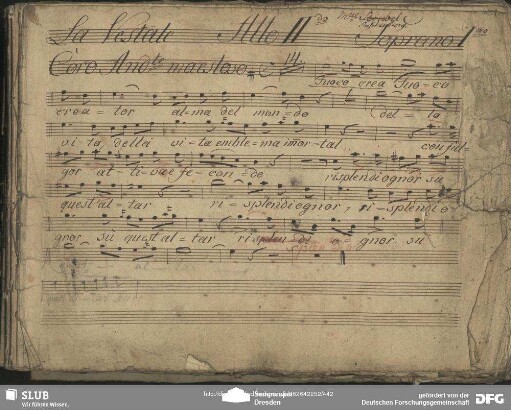 La Vestale Atto II do Soprano I mo
Coro And.te maestoso
Fuoco crea Fuo=co
crea=tor al=ma del mon=do del=la
vi=ta della vi=ta emble=ma immor=tal con ful=
gor at=ti=vo e fe=con=do risplendi ognor su
quest'al=tar ri=splendi ognor, ri=splendi o=
gnor sù quest'al=tar risplen=di o=gnor su
SLUB
Wir führen Wissen.
Dresden
gefördert von der
Deutschen Forschungsgemeinschaft
DFG